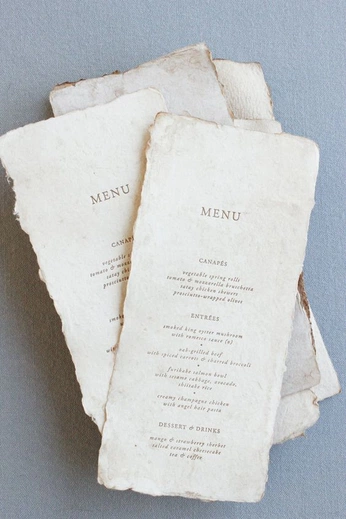 MENU
CANAPÉS
vegetable spring rolls
tomato & mozzarella bruschetta
satay chicken skewers
prosciutto-wrapped olives
ENTRÉES
smoked king oyster mushroom
with romesco sauce (v)
oak-grilled beef
with spiced carrots & charred broccoli
furikake salmon bowl
with sesame cabbage, avocado,
shiitake rice
creamy champagne chicken
with angel hair pasta
DESSERT & DRINKS
mango & strawberry sorbet
salted caramel cheesecake
tea & coffee
MENU
CANAP
vegetable
tomato & mozz
satay ch
prosciutt
smoke